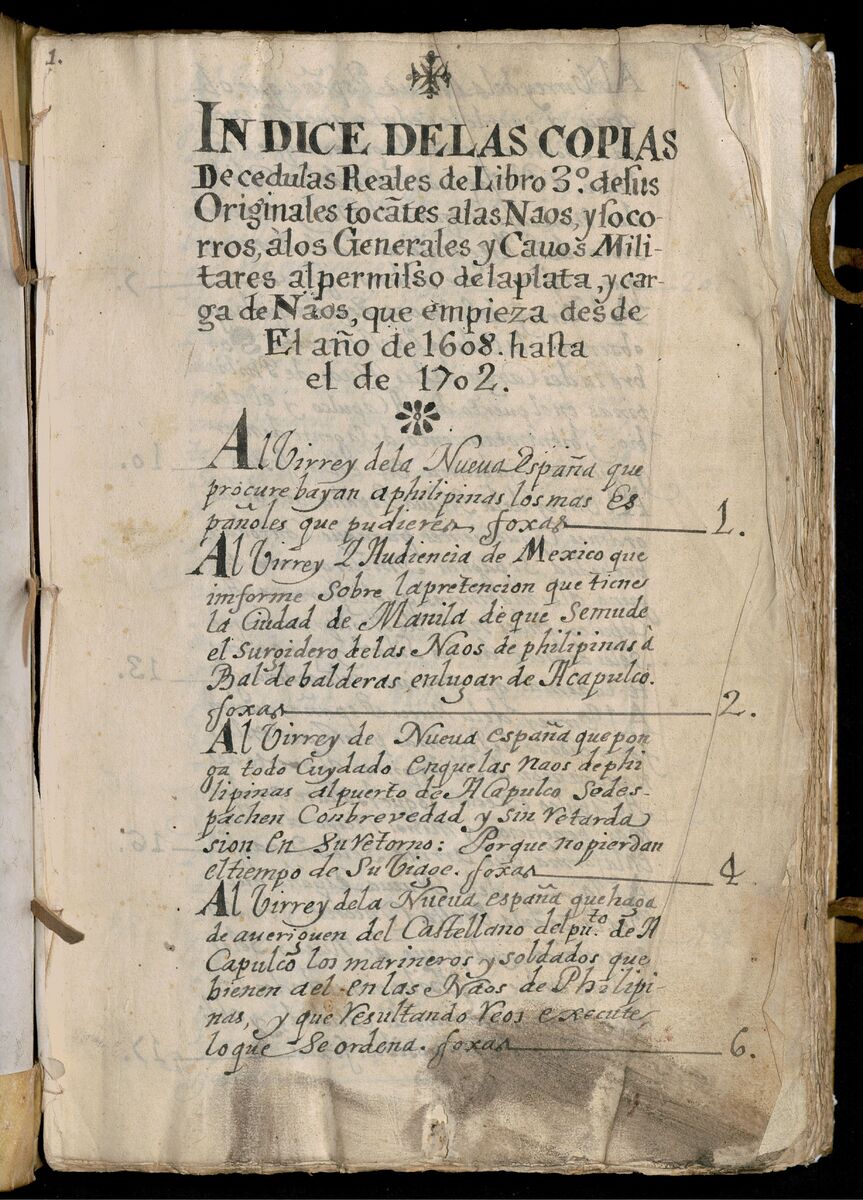 1.
INDICE DELAS COPIAS
De cedulas Reales de Libro 3.º desus
Originales tocãtes alas Naos, y soco-
rros, àlos Generales y Cavos Mili-
tares alpermisso delaplata, y car-
ga de Naos, que empieza desde
El año de 1608. hasta
el de 1702.
Al Virrey dela Nueua España que
procure bayan aphilipinas los mas Es
pañoles que pudieren foxas 1.
Al Virrey Y Audiencia de Mexico que
imforme sobre lapretencion que tiene
la Ciudad de Manila de que Semude
el surgidero delas Naos de philipinas à
Baldebalderas enlugar de Acapulco.
foxas 2.
Al Virrey de Nueua españa quepon
ga todo Cuydado enquelas naos dephi
lipinas alpuerto de ACapulco sedes-
pachen Conbrevedad y sin retarda
sion en su retorno: Porque nopierdan
eltiempo de Su Viage. foxas 4
Al Virrey dela Nueua españa quehaga
de averiguen del Castellano delpu.to de A
Capulco los marineros y soldados que
bienen ael en las Naos de Philipi-
nas, y que resultando reos execute
loque Se ordena. foxas 6.